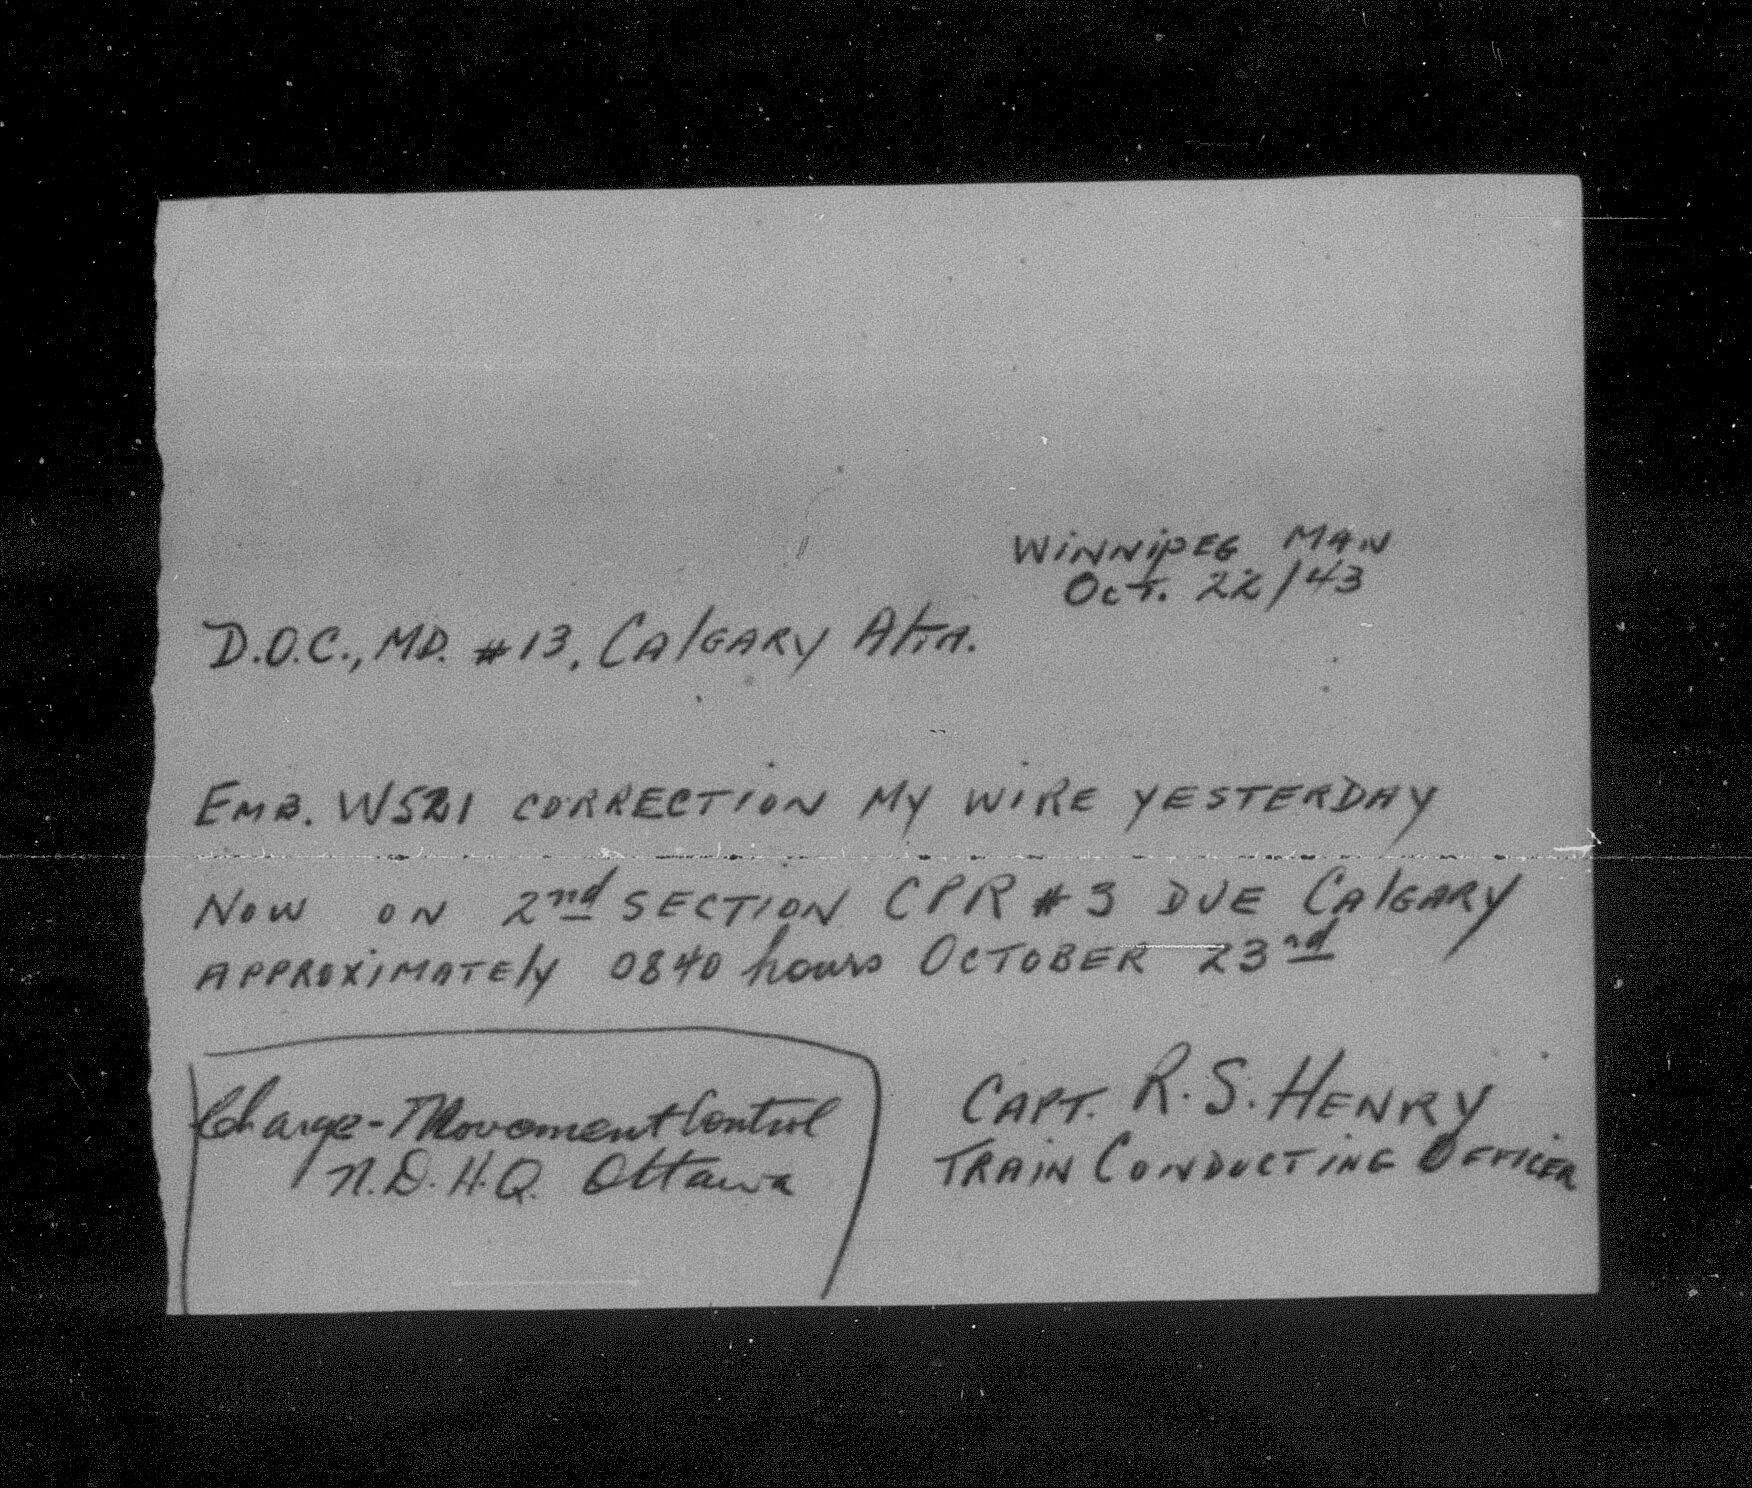 Winnipeg Man
Oct. 22/43
D.O.C., MD. #13, Calgary Alta.
Emb. W521 correction my wire yesterday
Now on 2nd section CPR #3 due Calgary
approximately 0840 hours October 23rd
Capt. R. S. Henry
Train Conducting Officer
Charge - Movement Control
N.D.H.Q. Ottawa